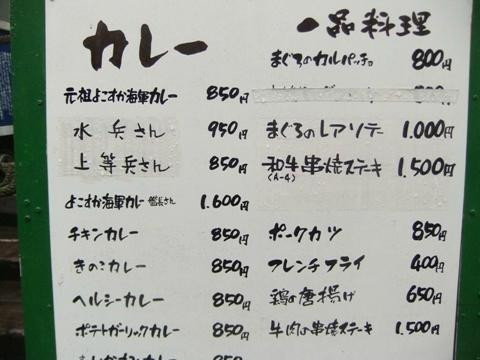 カレー
元祖よこすか海軍カレー 850円
水兵さん 950円
上等兵さん 850円
よこすか海軍カレー 艦長さん 1.600円
チキンカレー 850円
きのこカレー 850円
ヘルシーカレー 850円
ポテトガーリックカレー 850円
850
一品料理
まぐろのカルパッチョ 800円
まぐろのレアソテー 1.000円
和牛串焼ステーキ 1.500円
(A-4)
ポークカツ 850円
フレンチフライ 400円
鶏の唐揚げ 650円
牛肉の串焼ステーキ 1.500円